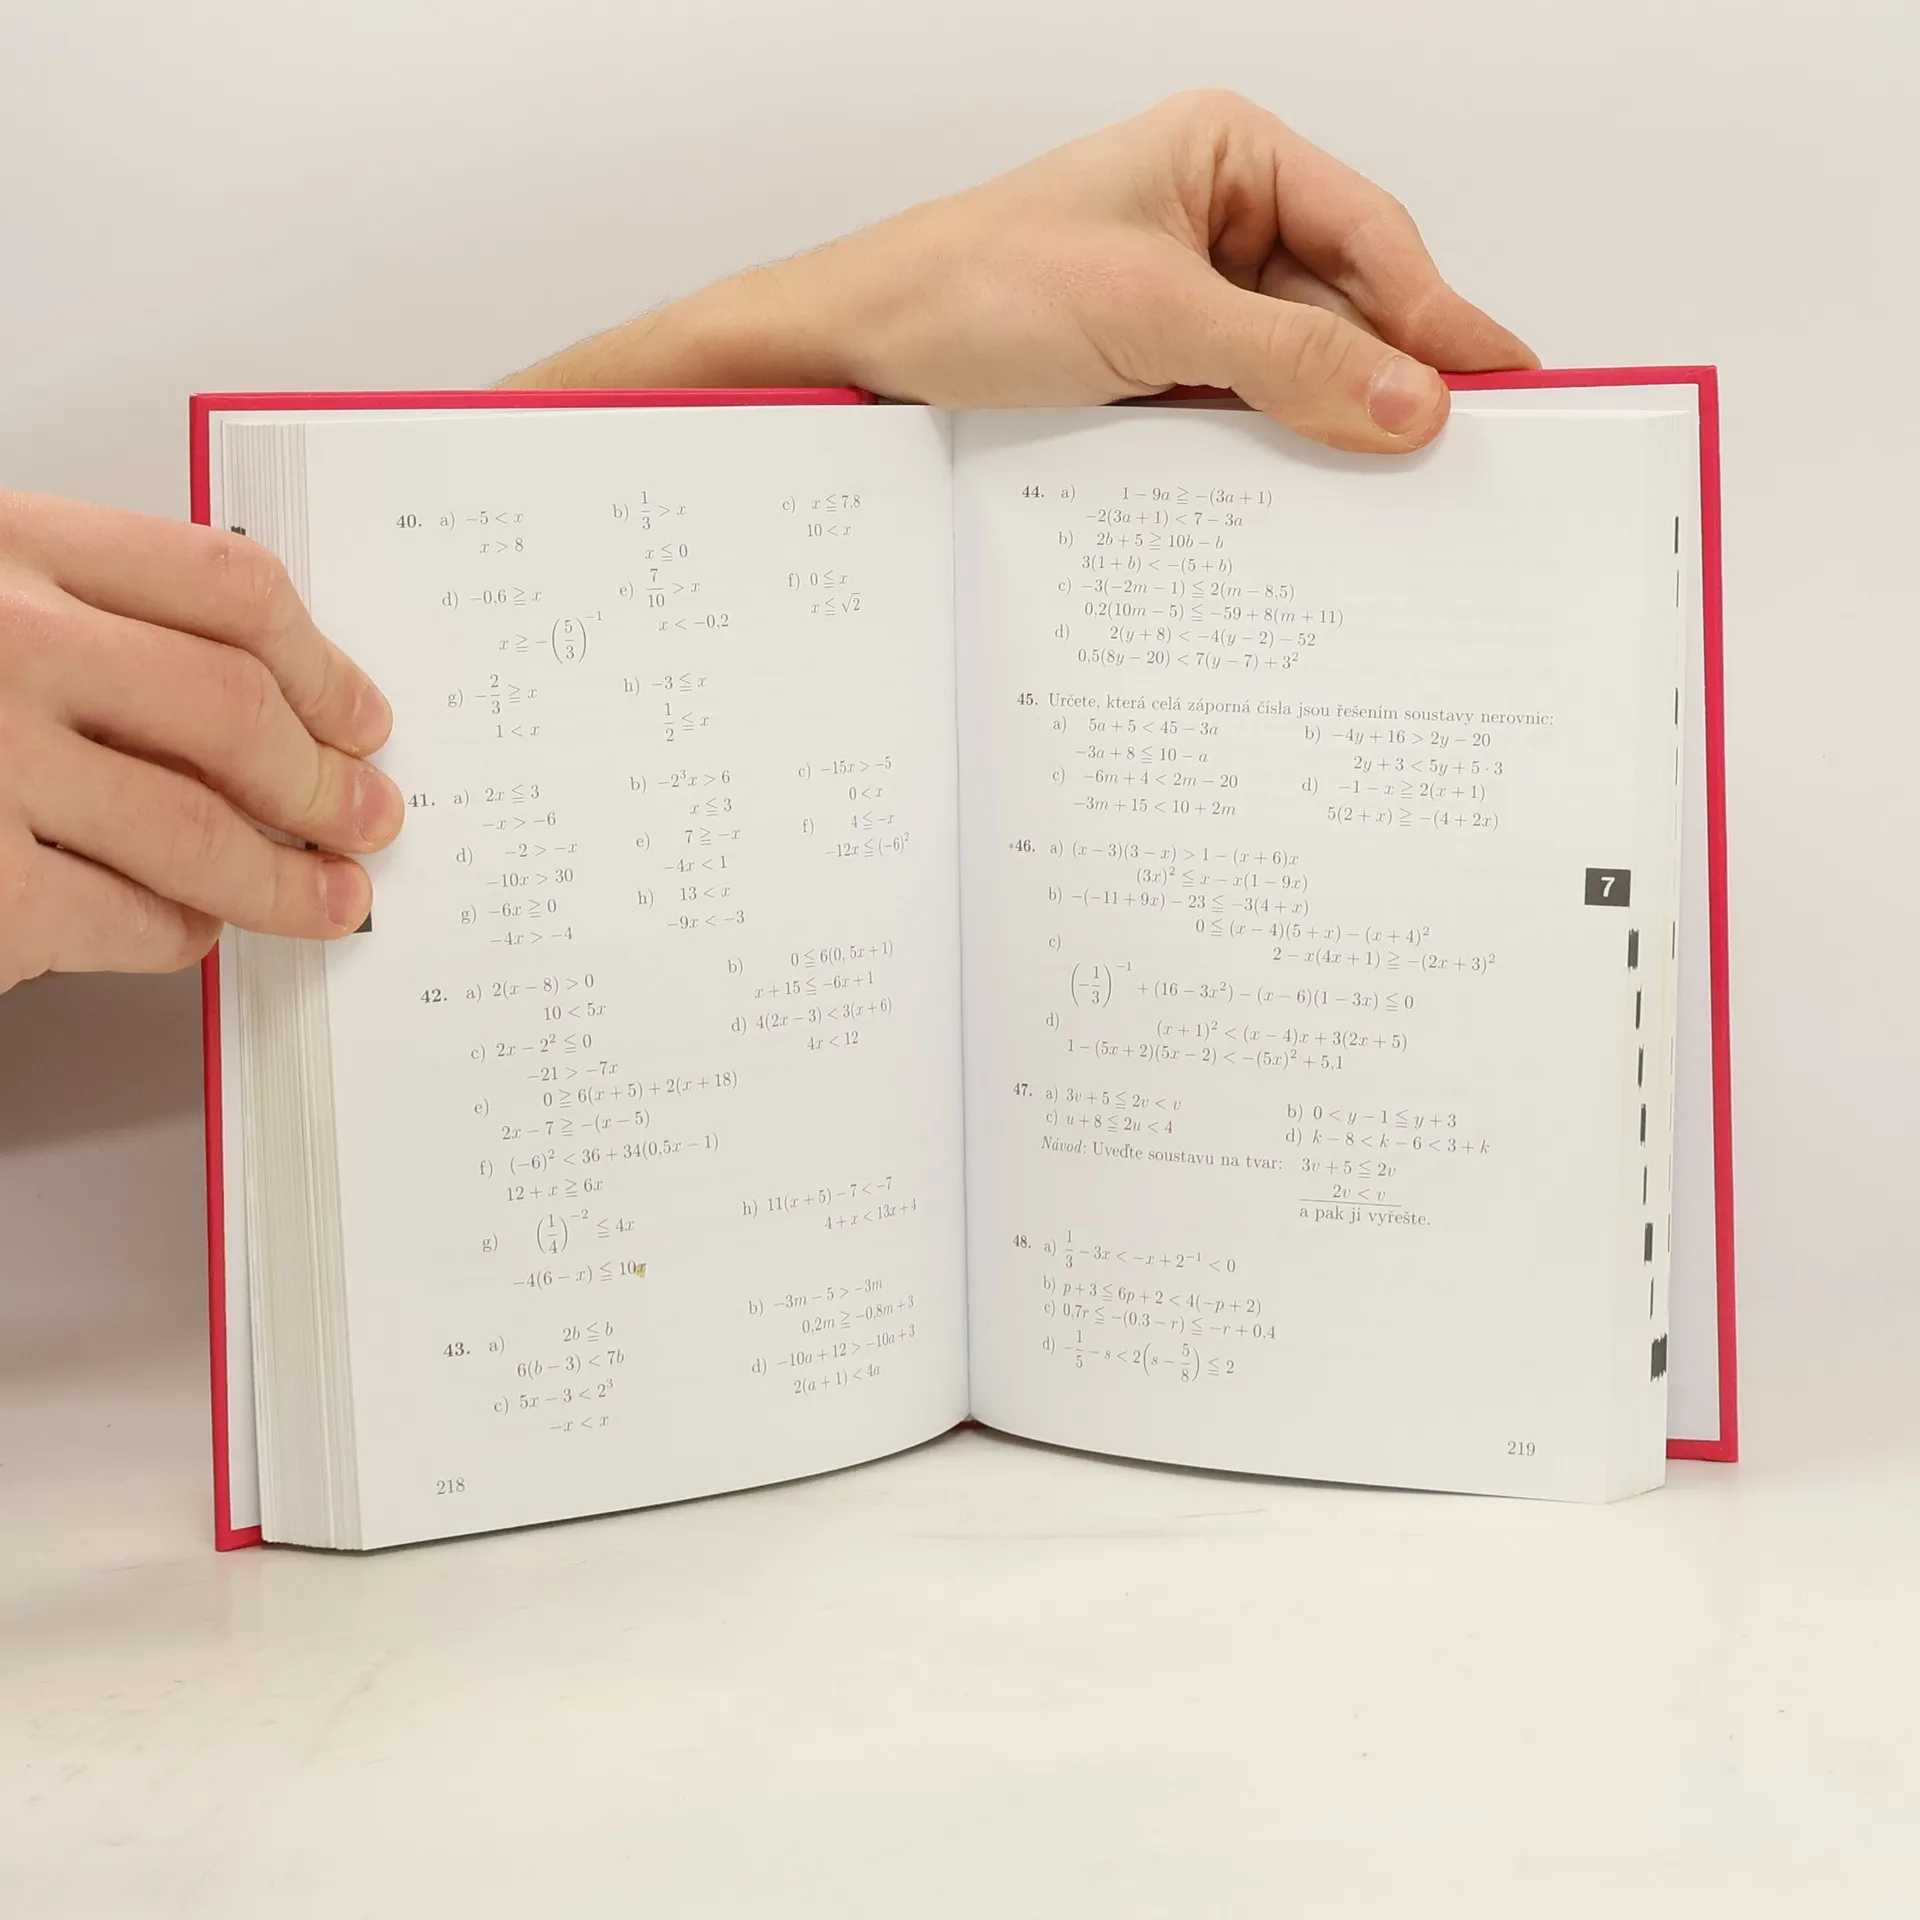 40. a) −5 < x b) 1/3 > x c) x ≦ 7,8
x > 8 x ≦ 0 10 < x
d) −0,6 ≧ x e) 7/10 > x f) 0 ≦ x
x ≧ −(5/3)⁻¹ x < −0,2 x ≦ √2
g) −2/3 ≧ x h) −3 ≦ x
1 < x 1/2 ≦ x
41. a) 2x ≦ 3 b) −2³x > 6 c) −15x > −5
−x > −6 x ≦ 3 0 < x
d) −2 > −x e) 7 ≧ −x f) 4 ≦ −x
−10x > 30 −4x < 1 −12x ≦ (−6)²
g) −6x ≧ 0 h) 13 < x
−4x > −4 −9x < −3
42. a) 2(x − 8) > 0 b) 0 ≦ 6(0,5x + 1)
10 < 5x x + 15 ≦ −6x + 1
c) 2x − 2² ≦ 0 d) 4(2x − 3) < 3(x + 6)
−21 > −7x 4x < 12
e) 0 ≧ 6(x + 5) + 2(x + 18)
2x − 7 ≧ −(x − 5)
f) (−6)² < 36 + 34(0,5x − 1)
12 + x ≧ 6x
g) (1/4)⁻² ≦ 4x h) 11(x + 5) − 7 < −7
−4(6 − x) ≦ 10x 4 + x < 13x + 4
43. a) 2b ≦ b b) −3m − 5 > −3m
6(b − 3) < 7b 0,2m ≧ −0,8m + 3
c) 5x − 3 < 2³ d) −10a + 12 > −10a + 3
−x < x 2(a + 1) < 4a
218
44. a) 1 − 9a ≧ −(3a + 1)
−2(3a + 1) < 7 − 3a
b) 2b + 5 ≧ 10b − b
3(1 + b) < −(5 + b)
c) −3(−2m − 1) ≦ 2(m − 8,5)
0,2(10m − 5) ≦ −59 + 8(m + 11)
d) 2(y + 8) < −4(y − 2) − 52
0,5(8y − 20) < 7(y − 7) + 3²
45. Určete, která celá záporná čísla jsou řešením soustavy nerovnic:
a) 5a + 5 < 45 − 3a b) −4y + 16 > 2y − 20
−3a + 8 ≦ 10 − a 2y + 3 < 5y + 5 · 3
c) −6m + 4 < 2m − 20 d) −1 − x ≧ 2(x + 1)
−3m + 15 < 10 + 2m 5(2 + x) ≧ −(4 + 2x)
*46. a) (x − 3)(3 − x) > 1 − (x + 6)x
(3x)² ≦ x − x(1 − 9x)
7
b) −(−11 + 9x) − 23 ≦ −3(4 + x)
0 ≦ (x − 4)(5 + x) − (x + 4)²
c) 2 − x(4x + 1) ≧ −(2x + 3)²
(−1/3)⁻¹ + (16 − 3x²) − (x − 6)(1 − 3x) ≦ 0
d) (x + 1)² < (x − 4)x + 3(2x + 5)
1 − (5x + 2)(5x − 2) < −(5x)² + 5,1
47. a) 3v + 5 ≦ 2v < v b) 0 < y − 1 ≦ y + 3
c) u + 8 ≦ 2u < 4 d) k − 8 < k − 6 < 3 + k
Návod: Uveďte soustavu na tvar: 3v + 5 ≦ 2v
2v < v
a pak ji vyřešte.
48. a) 1/3 − 3x < −x + 2⁻¹ < 0
b) p + 3 ≦ 6p + 2 < 4(−p + 2)
c) 0,7r ≦ −(0,3 − r) ≦ −r + 0,4
d) −1/5 − s < 2(s − 5/8) ≦ 2
219